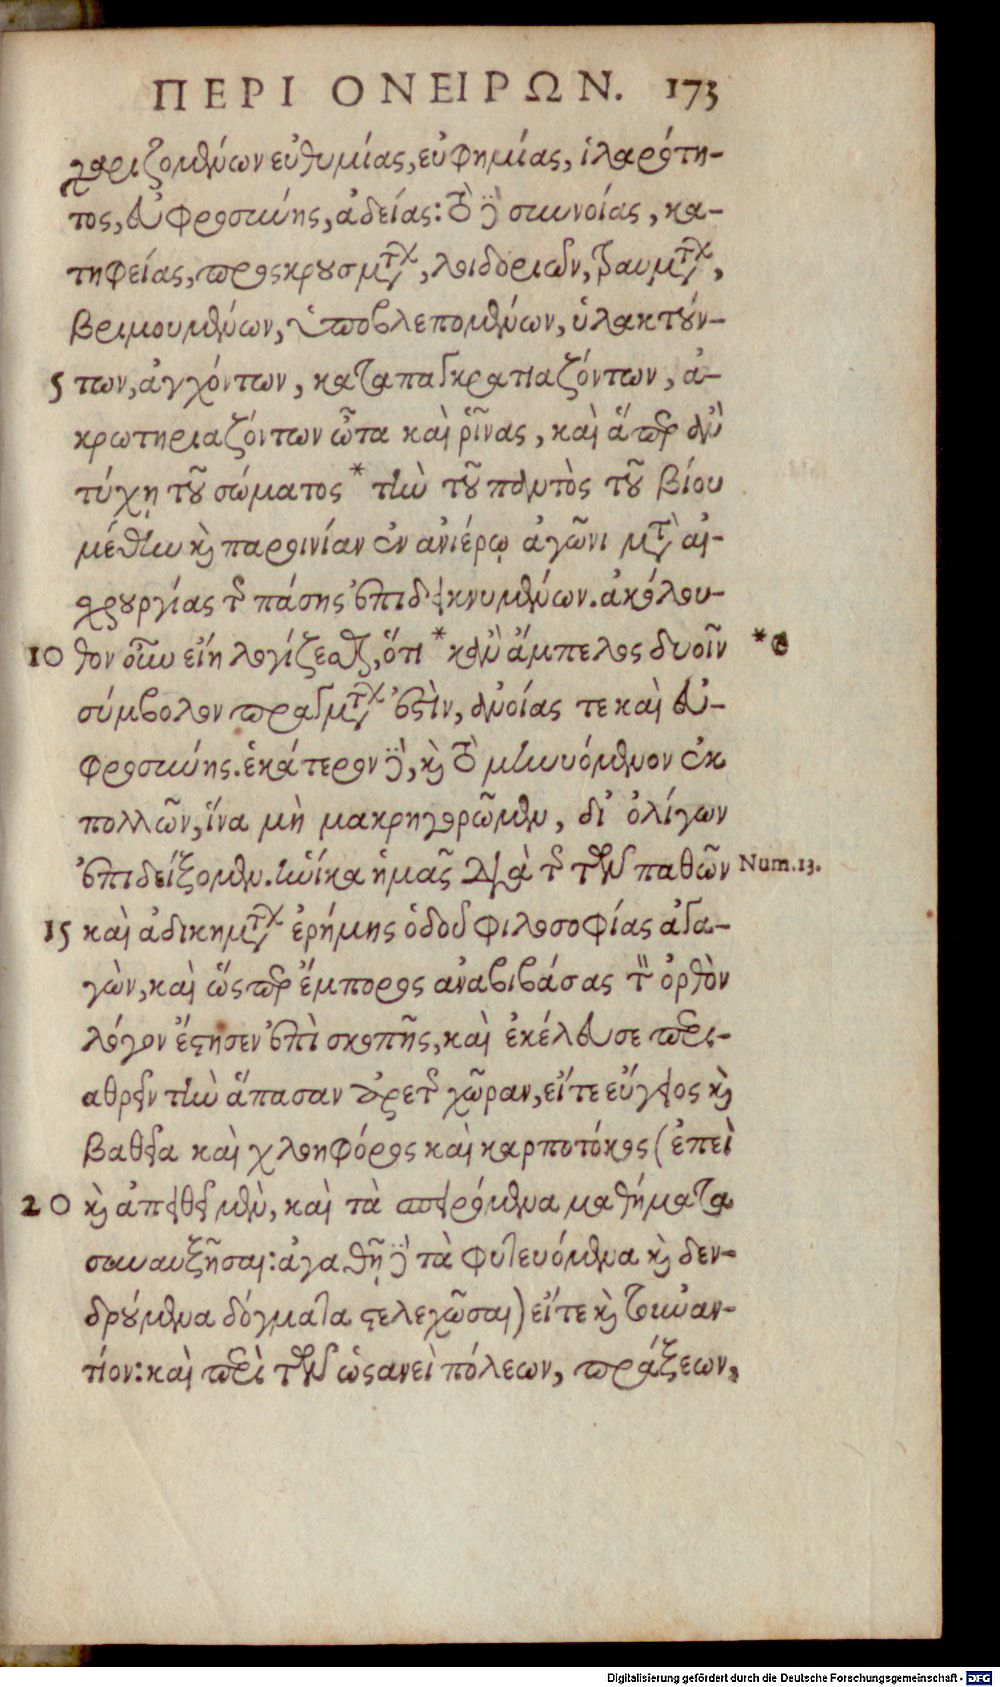 ΠΕΡΙ ΟΝΕΙΡΩΝ. 173
χαριζομένων εὐθυμίας, εὐφημίας, ἱλαρότη-
τος, εὐφροσύνης, ἀδείας: τὸ δὲ συννοίας, κα-
τηφείας, προσκρουσμάτων, λοιδοριῶν, τραυμάτων,
βριμουμένων, ὑποβλεπομένων, ὑλακτούν-
5 των, ἀγχόντων, καταπαγκρατιαζόντων, ἀ-
κρωτηριαζόντων ὦτα καὶ ῥῖνας, καὶ ἅπερ ἂν
τύχῃ τοῦ σώματος * τὴν τοῦ παντὸς τοῦ βίου
μέθην καὶ παροινίαν ἐν ἀνιέρῳ ἀγῶνι μετὰ αἰ-
σχρουργίας τῆς πάσης ἐπιδεικνυμένων. ἀκόλου-
10 θον οὖν εἴη λογίζεσθαι, ὅτι * καὶ ἂν ἄμπελος δυοῖν * ἡ
σύμβολον πραγμάτων ἐστὶν, ἀνοίας τε καὶ εὐ-
φροσύνης. ἑκάτερον δὲ, καὶ τὸ μηνυόμενον ἐκ
πολλῶν, ἵνα μὴ μακρηγορῶμεν, δι' ὀλίγων
ἐπιδείξομεν. ἡνίκα ἡμᾶς διὰ τῆς τῶν παθῶν Num. 13.
15 καὶ ἀδικημάτων ἐρήμης ὁδοῦ φιλοσοφίας ἀγα-
γὼν, καὶ ὥσπερ ἔμπορος ἀναβιβάσας τὸν ὀρθὸν
λόγον ἔστησεν ἐπὶ σκοπῆς, καὶ ἐκέλευσε περι-
αθρεῖν τὴν ἅπασαν ἀρετῆς χῶραν, εἴτε εὔγειος καὶ
βαθεῖα καὶ χλοηφόρος καὶ καρποτόκος (ἐπεὶ
20 καὶ ἀπειθεῖ μὲν, καὶ τὰ σπειρόμενα μαθήματα
συναυξῆσαι: ἀγαθὴ δὲ τὰ φυτευόμενα καὶ δεν-
δρούμενα δόγματα στελεχῶσαι) εἴτε καὶ τοὐναν-
τίον: καὶ περὶ τῶν ὡσανεὶ πόλεων, πράξεων,
Digitalisierung gefördert durch die Deutsche Forschungsgemeinschaft - DFG